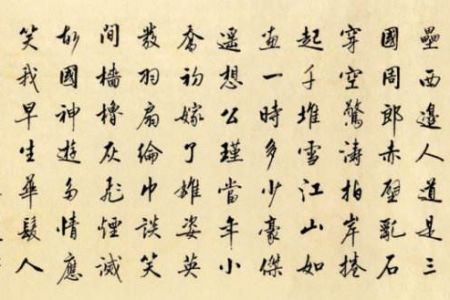 壘西邊人道是三
國周郎赤壁亂石
穿空驚濤拍岸捲
起千堆雪江山如
畫一時多少豪傑
遥想公瑾當年小
喬初嫁了雄姿英
發羽扇綸巾談笑
間檣櫓灰飛煙滅
故國神遊多情應
笑我早生華髮人